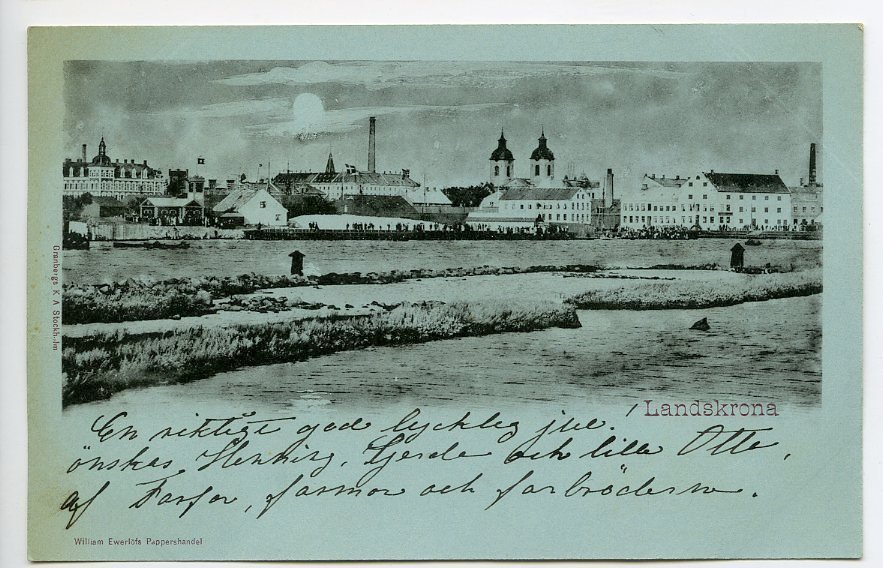 Granbergs K. A. Stockholm
Landskrona
En riktigt god lycklig jul!
önskas Henning, Gerda och lille Otto,
af Farfar, farmor och farbröderna.
William Ewerlöfs Pappershandel